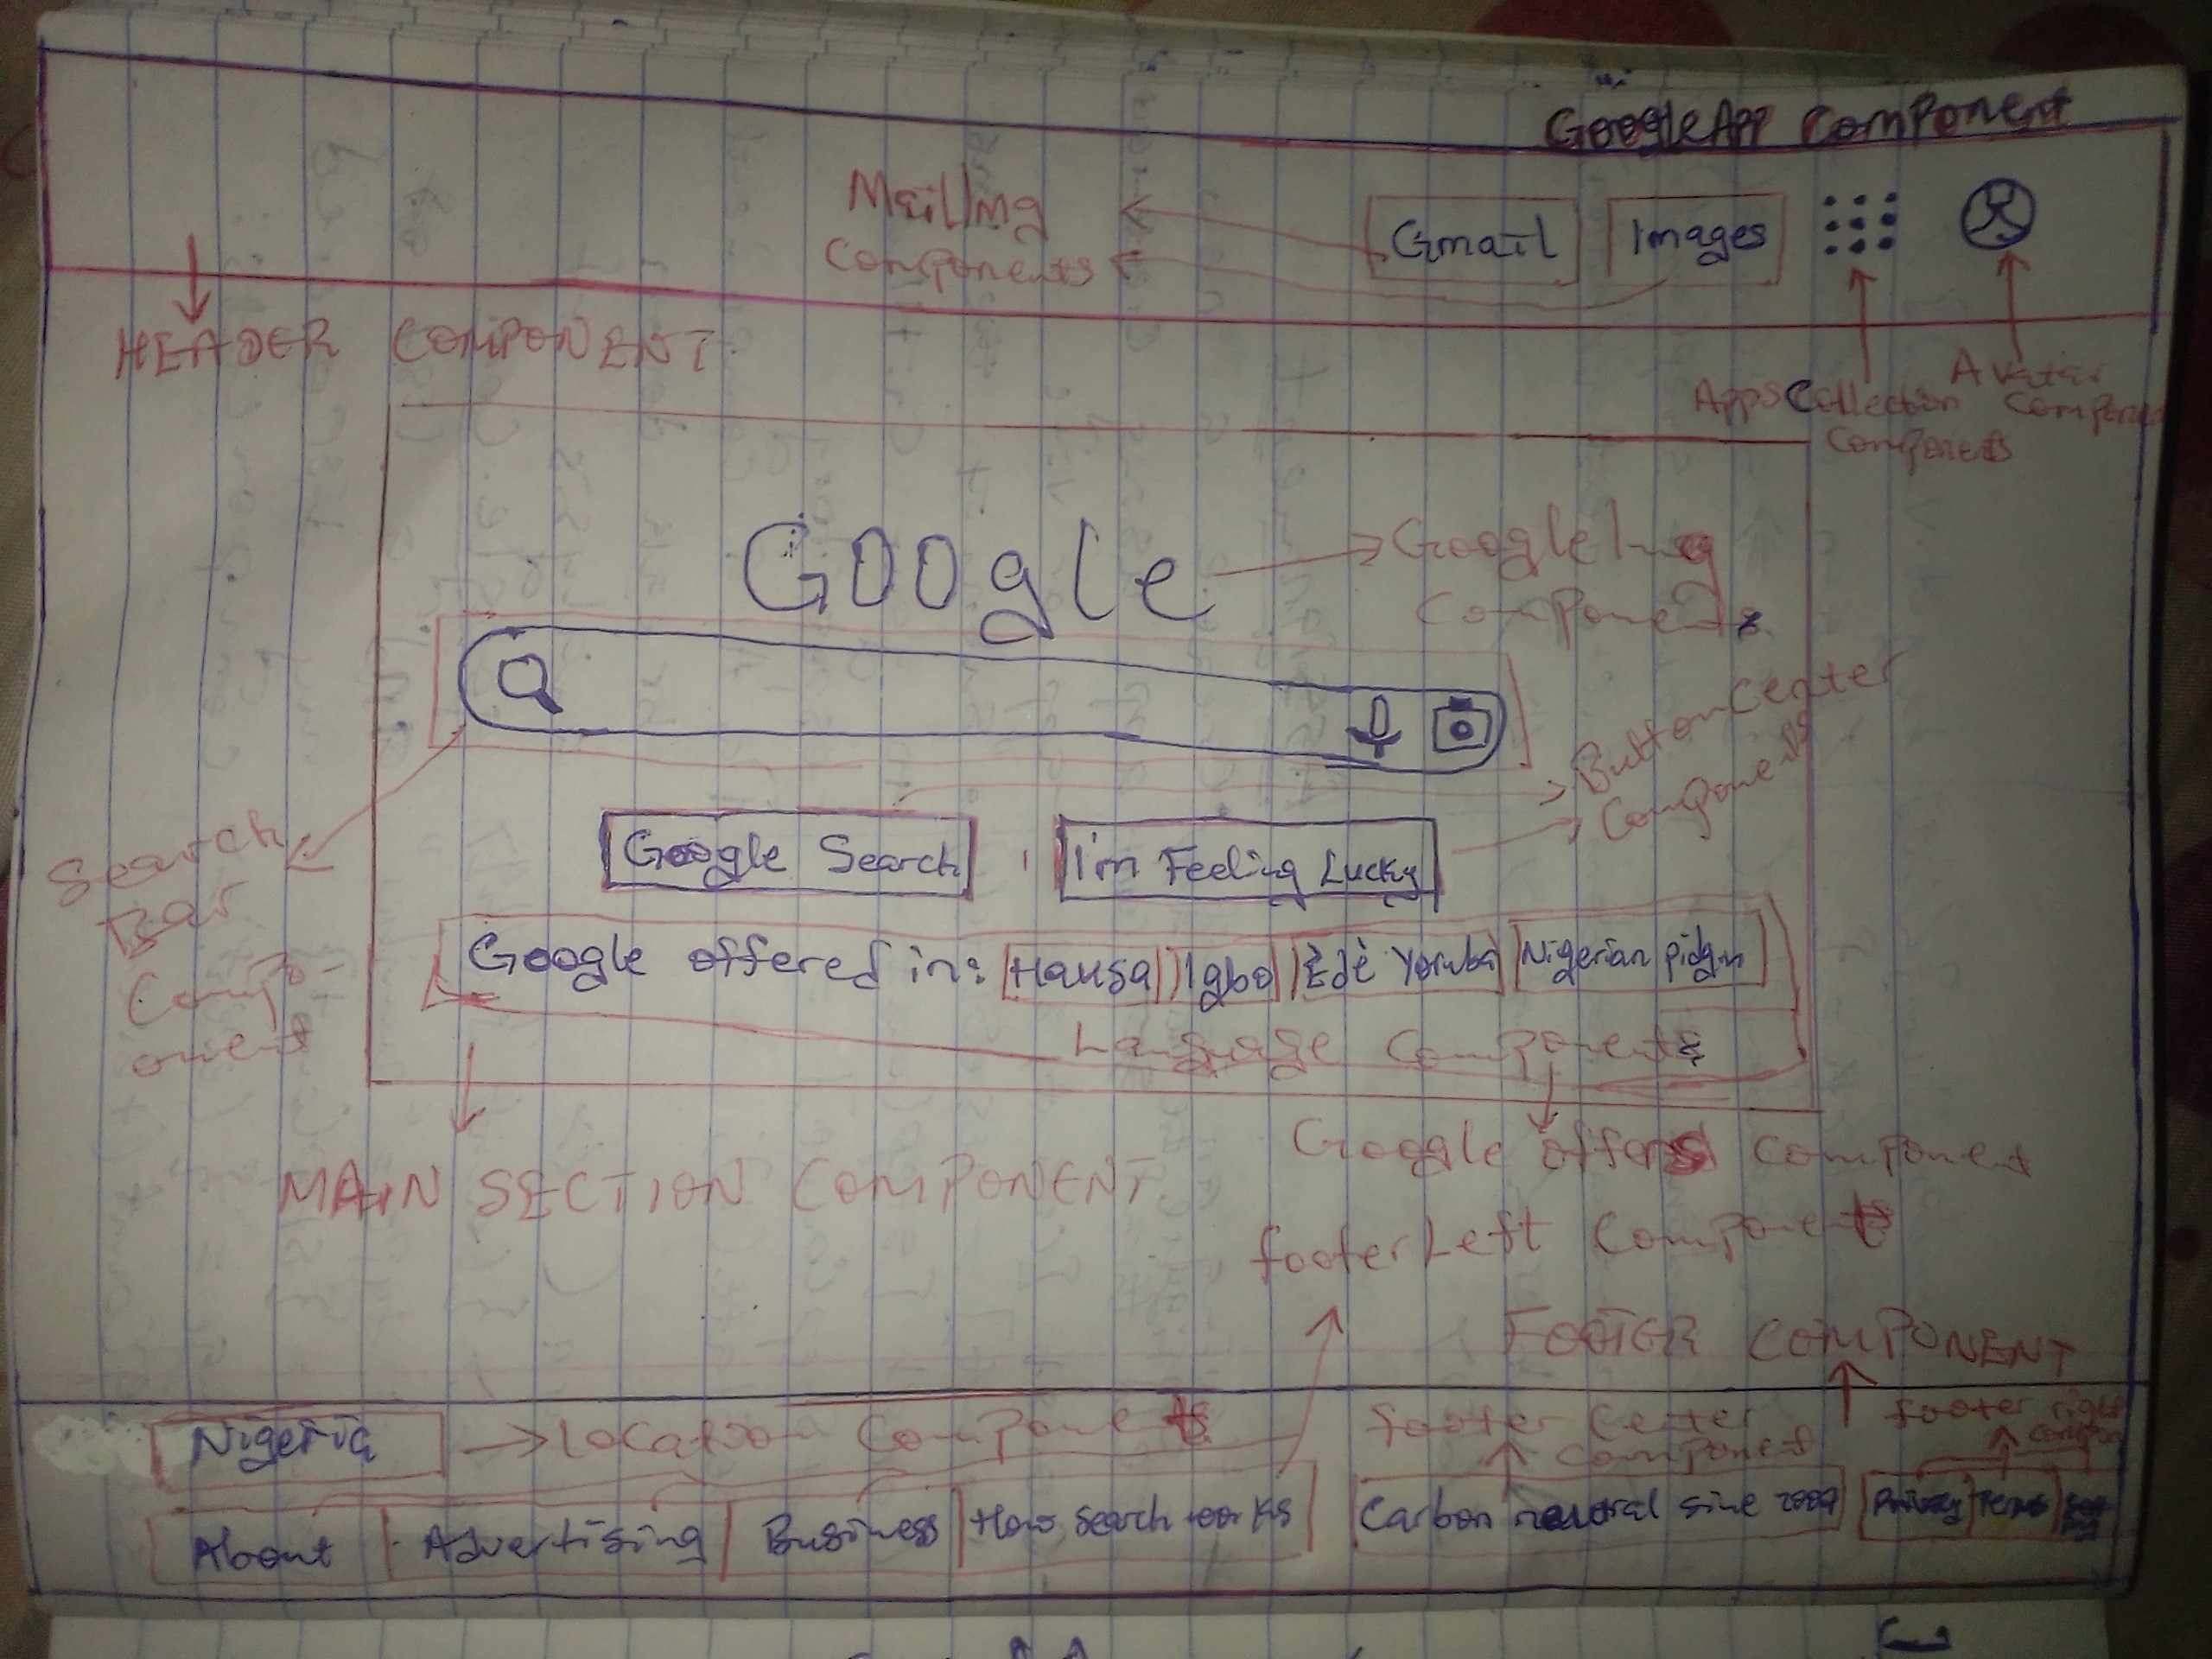 GoogleApp Component
Mailing
Components
Gmail
Images
HEADER COMPONENT
AppsCollection
Components
Avatar
Google
GoogleImg
Components
ButtonCenter
Components
Search
Bar
Compo-
onent
Google Search
I'm Feeling Lucky
Google offered in: Hausa Igbo Èdè Yorùbá Nigerian pidgin
Language Components
MAIN SECTION COMPONENT
Google offers Component
footerLeft Components
FOOTER COMPONENT
Nigeria
Location Components
footer Center
Component
footer right
About
Advertising
Business
How Search works
Carbon neutral since 2007
Privacy
Terms